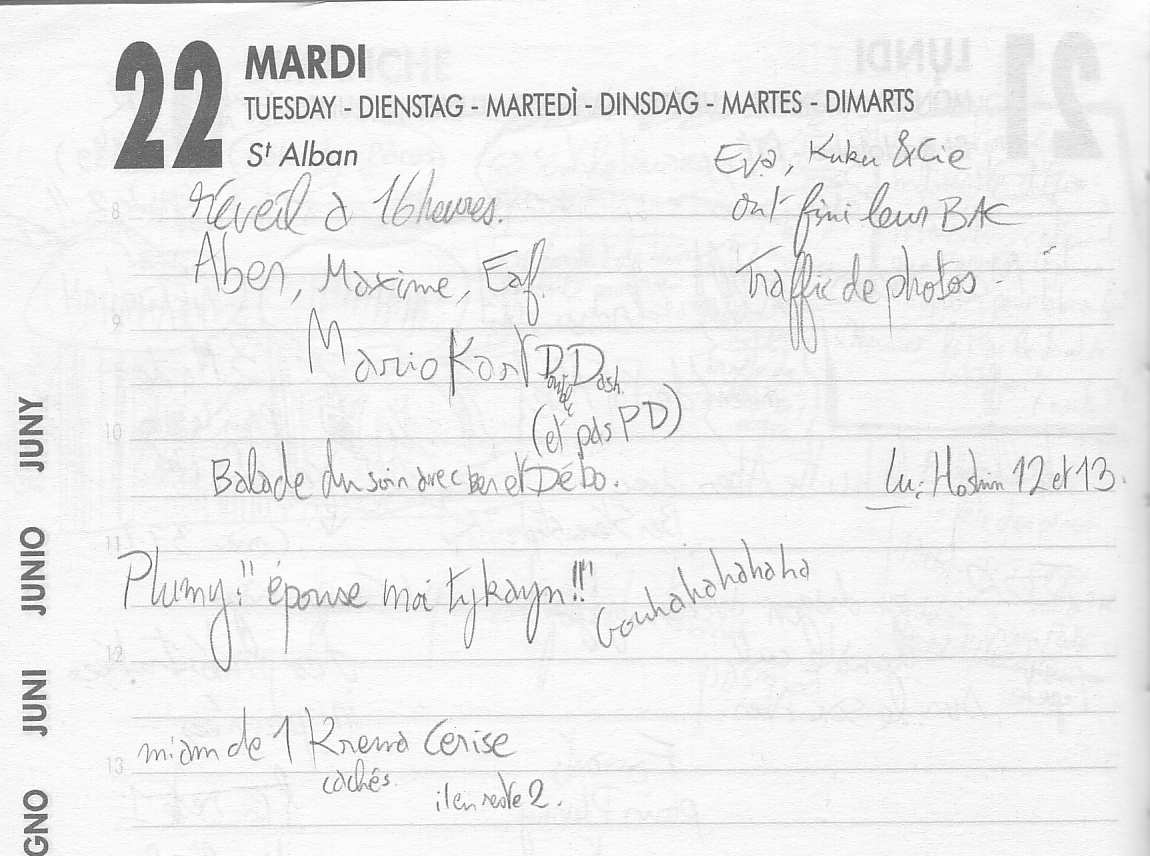 22 MARDI
TUESDAY - DIENSTAG - MARTEDÌ - DINSDAG - MARTES - DIMARTS
St Alban
Eva, Kuku & Cie
ont fini leur BAC
Traffic de photos.
8
Réveil à 16 heures.
Aben, Maxime, Eaf.
9
Mario Kart Double Dash.
(et pas PD)
10
Balade du soir avec Ben et Débo.
Lu: Hoshin 12 et 13.
11
Plumy: "épouse moi tykayn!!"
Gouhahahahaha
12
miam de 1 Krema Cerise
13
cachés.
il en reste 2.
JUNY
JUNIO
JUNI
GNO